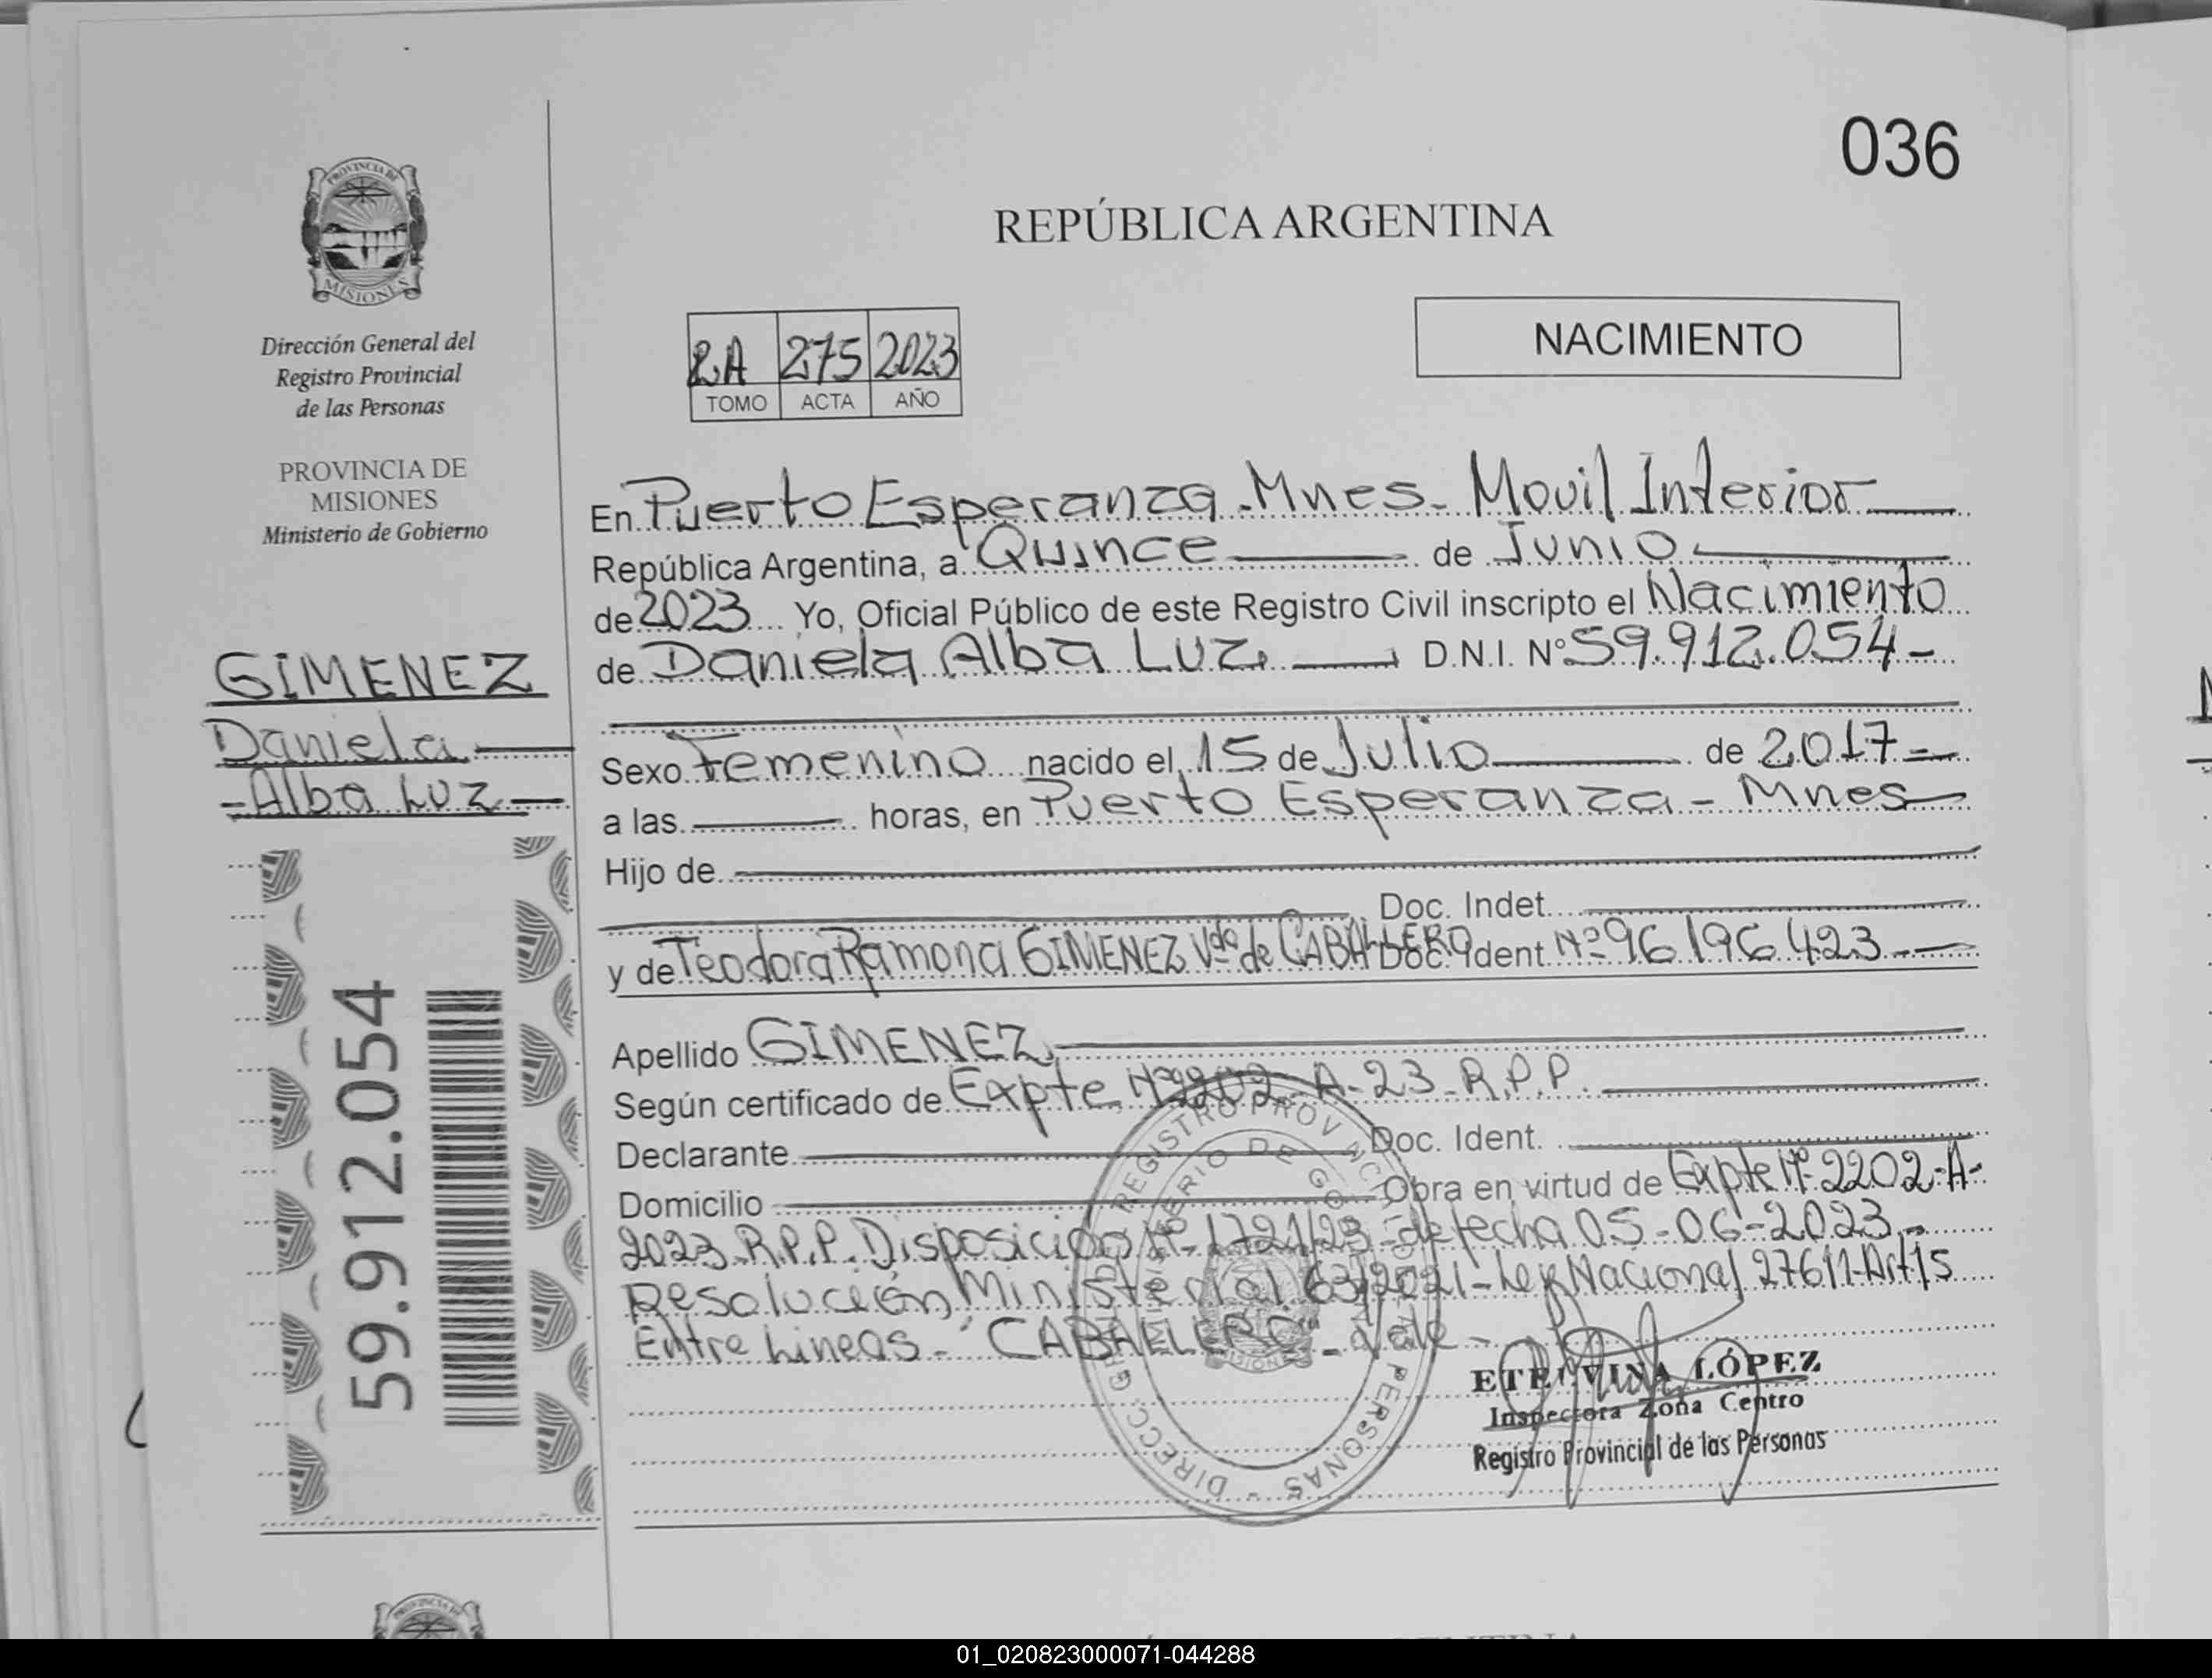 036
PROVINCIA DE
MISIONES
Dirección General del
Registro Provincial
de las Personas
PROVINCIA DE
MISIONES
Ministerio de Gobierno
GIMENEZ
Daniela
- Alba Luz
59.912.054
REPÚBLICA ARGENTINA
NACIMIENTO
2A 275 2023
TOMO ACTA AÑO
En Puerto Esperanza - Mnes - Movil Interior
República Argentina, a Quince de Junio
de 2023 Yo, Oficial Público de este Registro Civil inscripto el Nacimiento
de Daniela Alba Luz D.N.I. Nº 59.912.054 -
Sexo Femenino nacido el 15 de Julio de 2017 -
a las horas, en Puerto Esperanza - Mnes
Hijo de
Doc. Indet.
y de Teodora Ramona GIMENEZ Vda de CABALLERO Doc. Ident. Nº 96196423
Apellido GIMENEZ
Según certificado de Expte Nº 2202-A-23-R.P.P.
Declarante Doc. Ident.
Domicilio Obra en virtud de Expte Nº 2202-A-
2023-R.P.P. Disposición Nº 1721/23 - de fecha 05-06-2023 -
Resolución Ministerial 63/2021 - Ley Nacional 27611-Art 15
Entre Lineas - "CABALLERO" - Vale -
ETELVINA LÓPEZ
Inspectora Zona Centro
Registro Provincial de las Personas
MISIONES
01_020823000071-044288